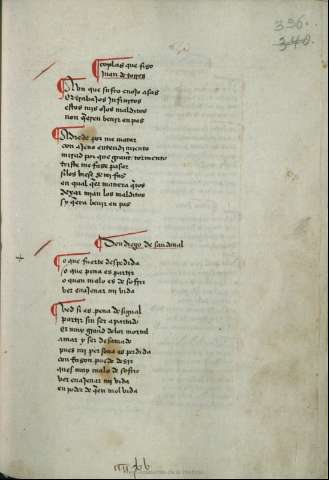 336.
340.
Coplas que fizo
Juan de torres
Aun que sufro enojo asas
& trabajos infinitos
estos mis ojos malditos
non quieren bevir en pas
Adrede por me matar
con ajeno entendimiento
mirad por que grant tormento
triste me fuese pasar
silos viese
en qual quier manera
dexar mian los malditos
sy quiera bevir en pas
Don diego de sandoual
O que fuerte despedida
o que pena es partir
o quan malo es de sofrir
ver enajenar mi vida
Ved si es pena desigual
partir sin ser apartado
es muy grand dolor mortal
amar y ser desamado
pues mi persona es perdida
con rrason puedo desir
ques muy malo de sofrir
ver enajenar mi vida
en poder de quien mal vida